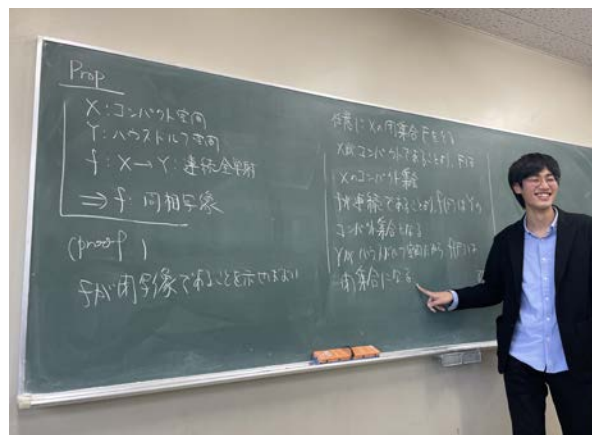 Prop
X:コンパクト空間
Y:ハウスドルフ空間
f:X→Y:連続全単射
⇒f:同相写像
(proof)
fが閉写像であることを示せばよい
任意にXの閉集合Fをとる
Xがコンパクトであることより,Fは
Xのコンパクト集合
fが連続であることより,f(F)はYの
コンパクト集合となる
Yがハウスドルフ空間だから,f(F)は
閉集合になる